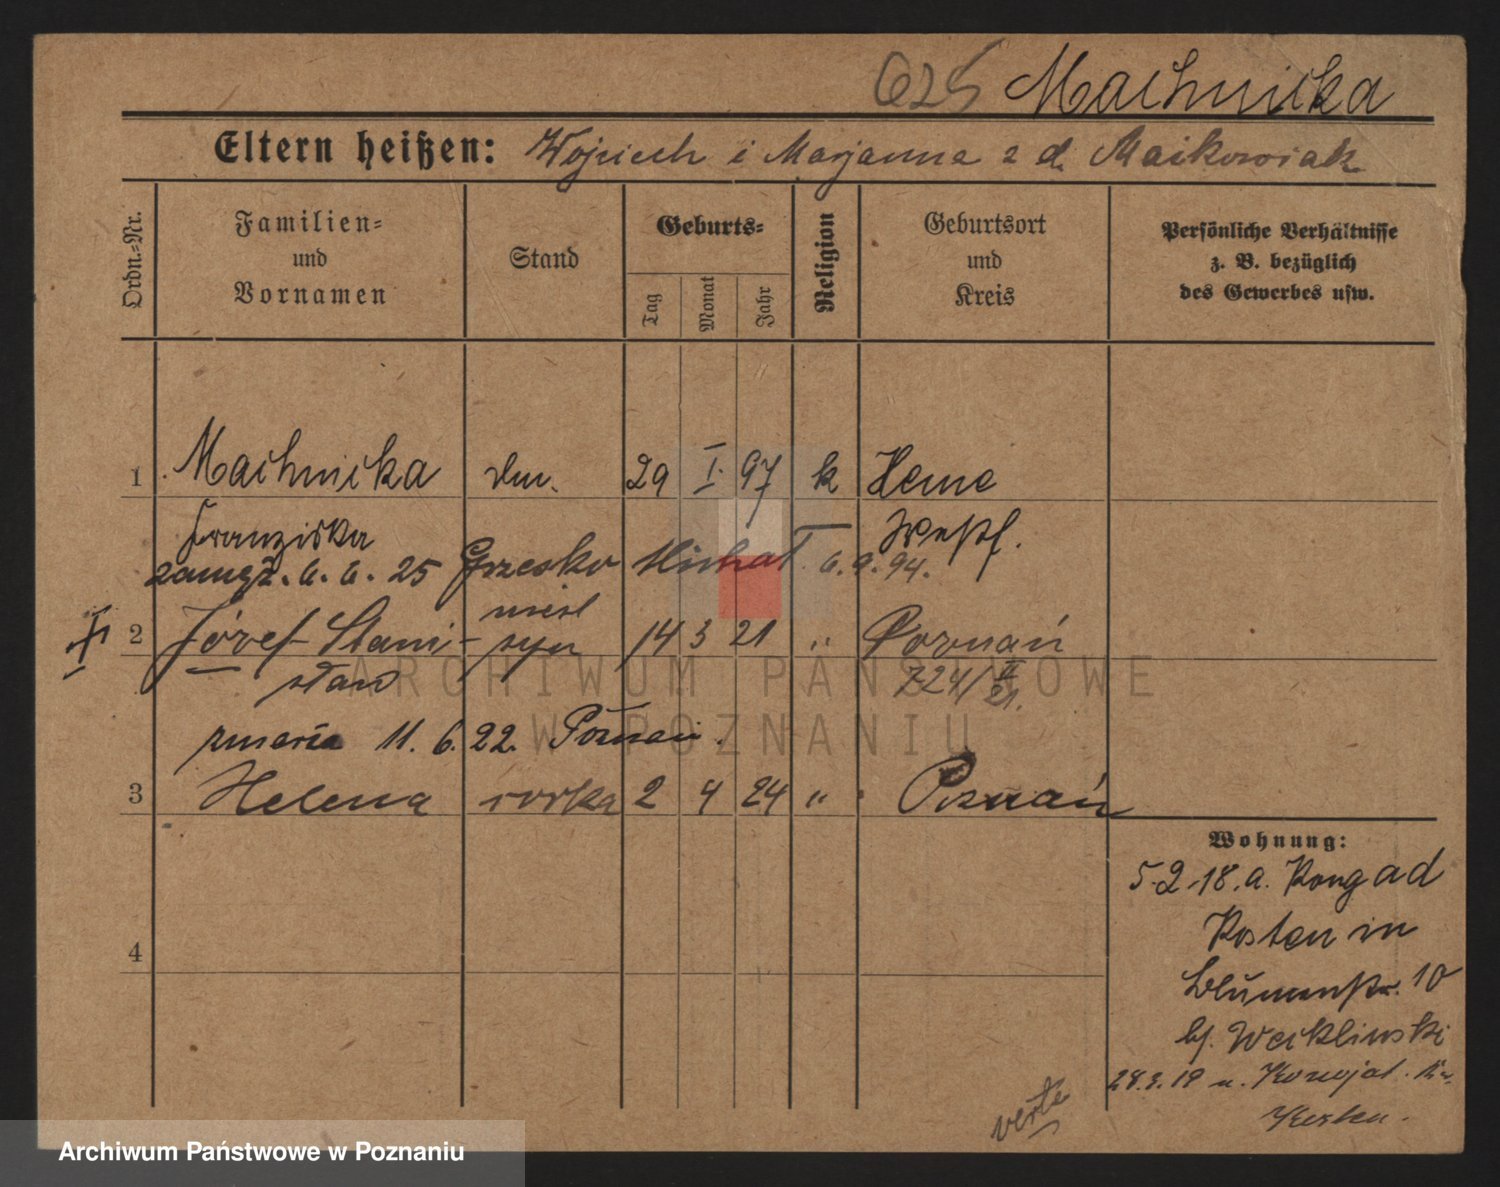 625 Machnicka
Eltern heißen: Wojciech i Marjanna z d. Maćkowiak
Ordn.-Nr.
Familien- und Vornamen
Stand
Geburts-
Tag
Monat
Jahr
Religion
Geburtsort und Kreis
Persönliche Verhältnisse z. B. bezüglich des Gewerbes usw.
1 Machnicka 29 I. 97 k Herne
Franziska Westf.
zamęż. 6. 6. 25 Grzesko Michał 6. 9. 94.
2 Józef Stani- syn 14 3 21 " Poznań
sław 724/II 21.
zmarł 11. 6. 22. Poznań.
3 Helena córka 2 4 24 " Poznań
4
Wohnung:
5.2.18. a. Kongad
Kosten in
Blumenstr. 10
bj. Weiklinski
28.3.19 n.
Kosten.
verte
ARCHIWUM PAŃSTWOWE
W POZNANIU
Archiwum Państwowe w Poznaniu